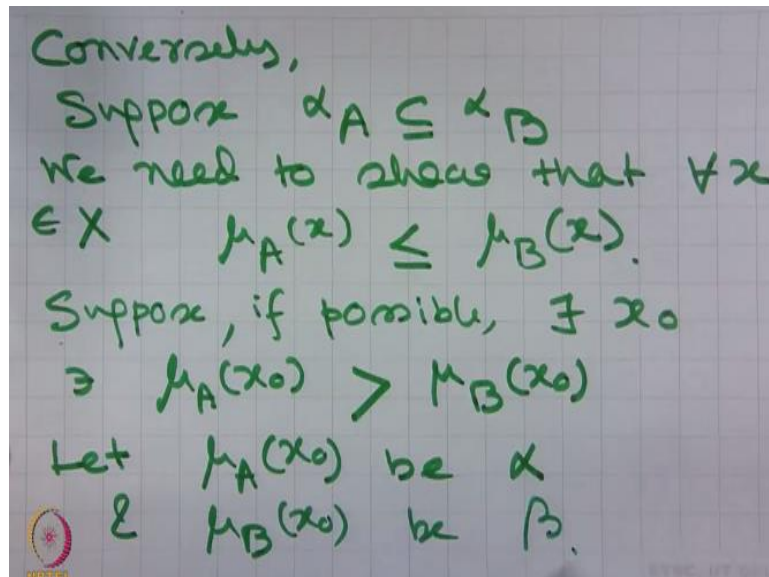 Conversely,
Suppose ᵅA ⊆ ᵅB
We need to show that ∀ x
∈ X μ_A(x) ≤ μ_B(x).
Suppose, if possible, ∃ x₀
∋ μ_A(x₀) > μ_B(x₀)
Let μ_A(x₀) be α
& μ_B(x₀) be β.